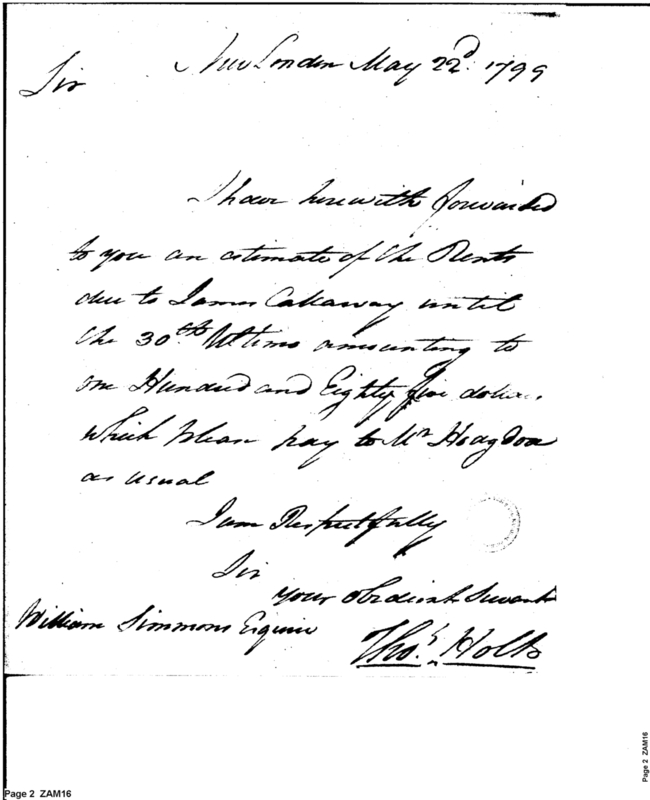 New London May 22d. 1799
Sir
I have herewith forwarded
to you an estimate of the Rents
due to James Callaway until
the 30th. Ultimo amounting to
one Hundred and Eighty five dollars,
which please pay to Mr Hodgdon
as usual
I am Respectfully
Sir
your obedient Servant
William Simmons Esquire
Thos. Holt
Page 2 ZAM16
Page 2 ZAM16